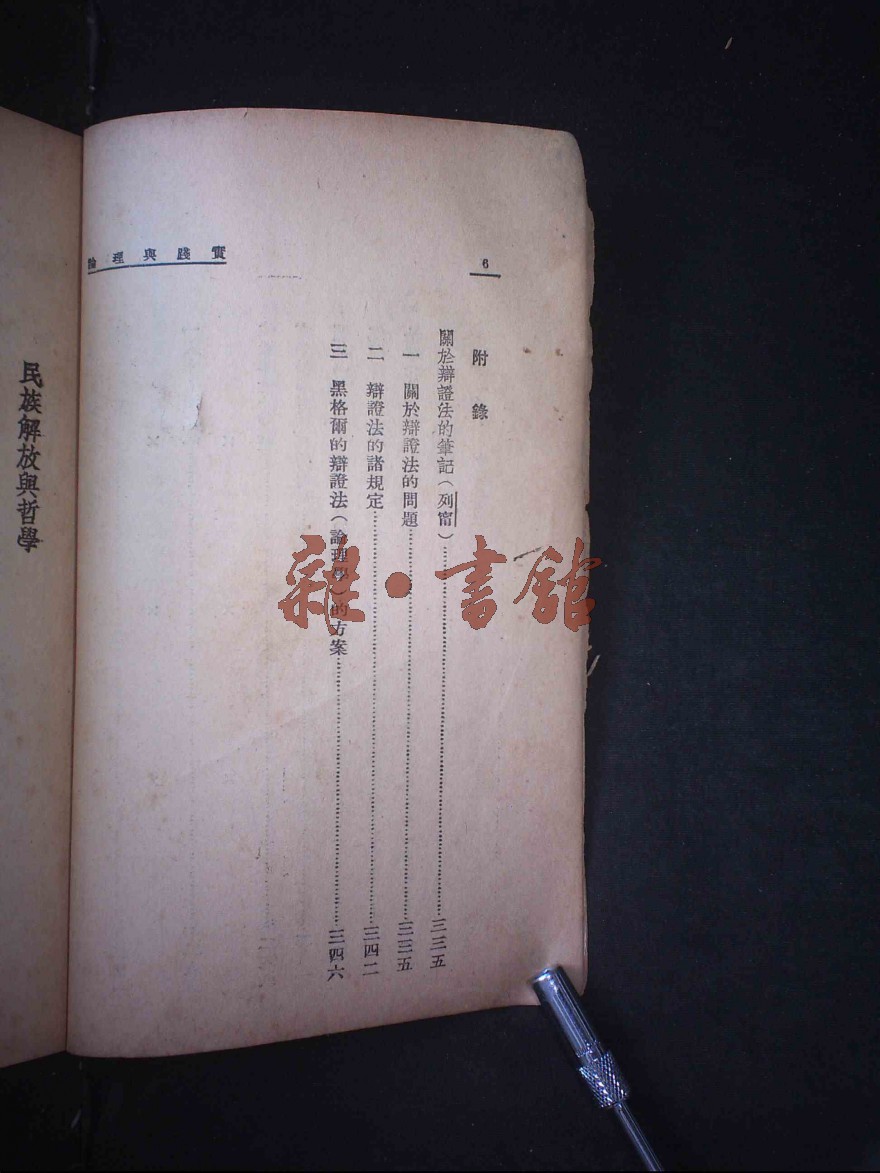 6
實踐與理論
附錄
關於辯證法的筆記(列甯)……三三五
一 關於辯證法的問題……三三五
二 辯證法的諸規定……三四二
三 黑格爾的辯證法(論理學)的方案……三四六
民族解放與哲學
雜·書館